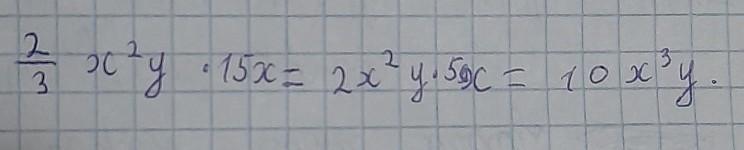 2/3 x²y · 15x = 2x²y · 5x = 10x³y.